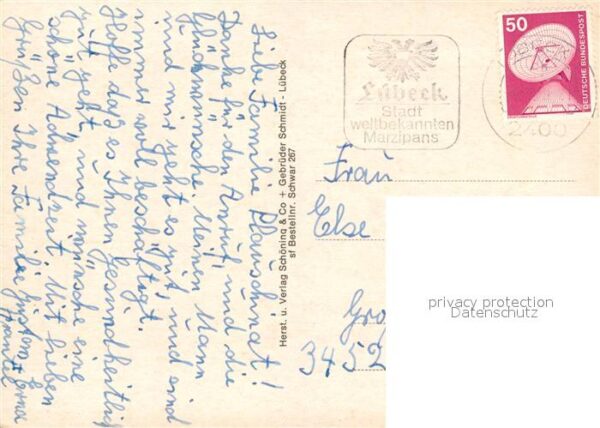 Liebe Familie Plauschinat!
Danke für den Anruf und die
Glückwünsche. Meinen Mann
und mir geht es gut und sind
immer voll beschäftigt.
Hoffe daß es Ihnen gesundheitlich
gut geht und wünsche eine
schöne Adventszeit. Mit lieben
Grüßen Ihre Familie
Erna
Herst. u. Verlag Schöning & Co + Gebrüder Schmidt - Lübeck
sf Bestellnr. Schwar 267
Lübeck
Stadt
weltbekannten
Marzipans
2400
50
DEUTSCHE BUNDESPOST
Frau
Else
Gro
3452
privacy protection
Datenschutz